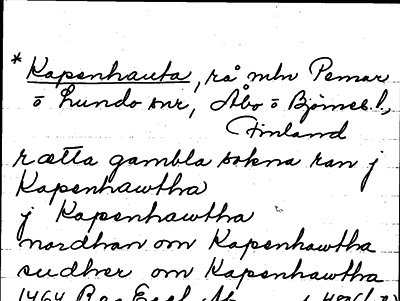 * Kapenhauta, rå mln Pemar
o Lundo snr, Åbo o Björneb. l.,
Finland
rætta gambla sokna ran j
Kapenhawtha
j Kapenhawtha
nordhan om Kapenhawtha
sudher om Kapenhawtha
1464 Reg Eccl Ab